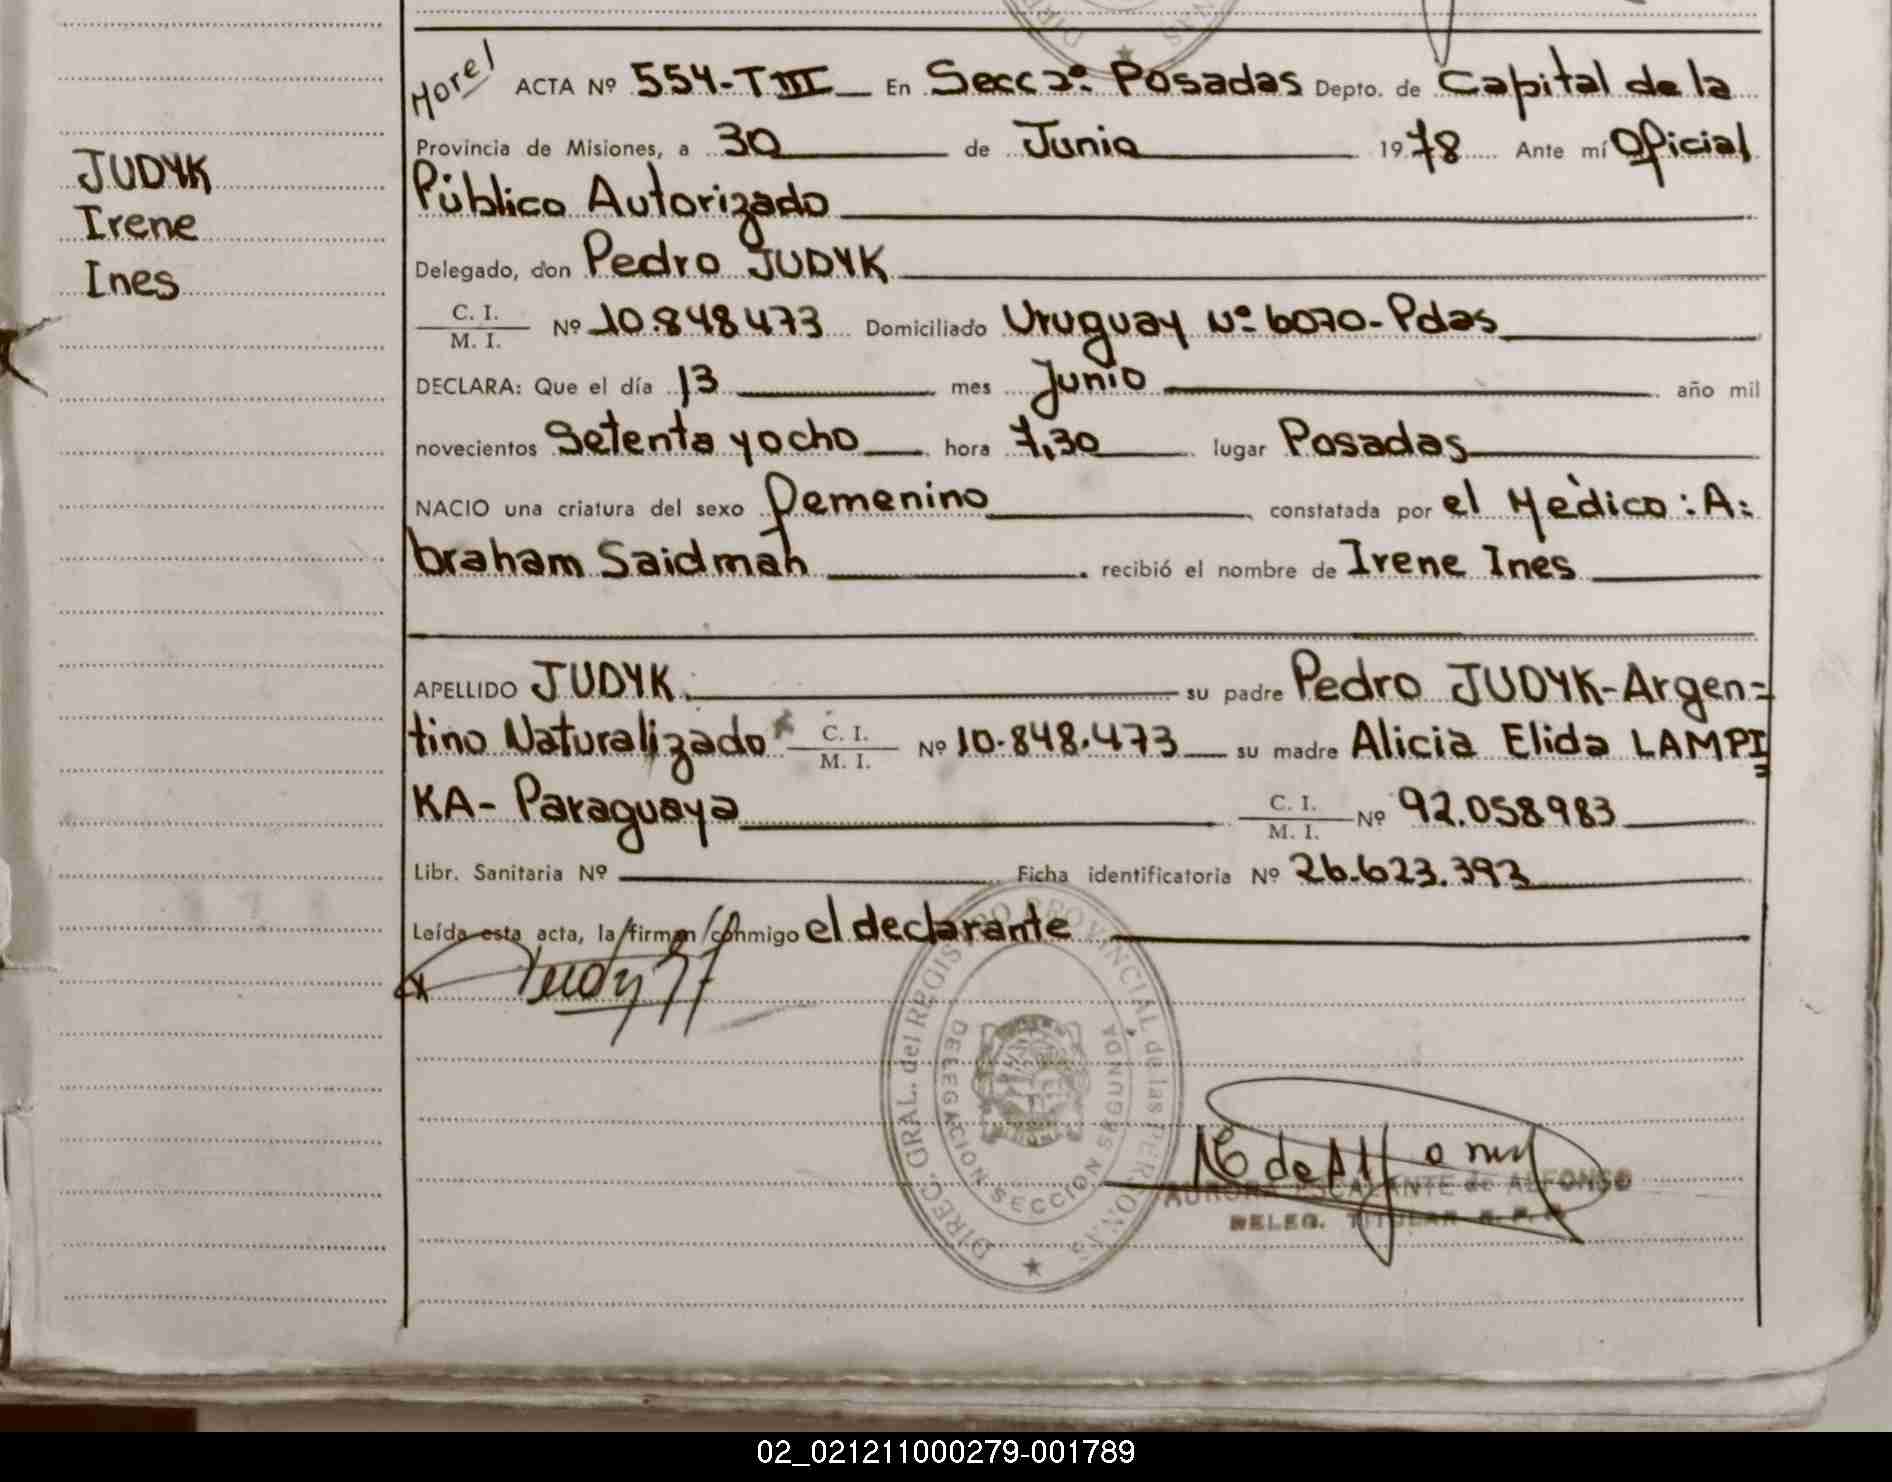 JUDYK
Irene
Ines
Morel
ACTA Nº 554-TIII En Secc 2º Posadas Depto. de Capital de la
Provincia de Misiones, a 30 de Junio 1978 Ante mí Oficial
Público Autorizado
Delegado, don Pedro JUDYK
C. I.
M. I. Nº 10.848473 Domiciliado Uruguay Nº 6070-Pdas
DECLARA: Que el día 13 mes Junio año mil
novecientos Setenta yocho hora 7,30 lugar Posadas
NACIO una criatura del sexo Femenino constatada por el Mèdico: A=
braham Saidman recibió el nombre de Irene Ines
APELLIDO JUDYK. su padre Pedro JUDYK-Argen=
tino Naturalizado C. I.
M. I. Nº 10.848.473 su madre Alicia Elida LAMPI=
KA- Paraguaya C. I.
M. I. Nº 92.058983
Libr. Sanitaria Nº Ficha identificatoria Nº 26.623.393
Leída esta acta, la firman conmigo el declarante
DIREC. GRAL. del REGISTRO PROVINCIAL de las PERSONAS
DELEGACION SECCION SEGUNDA
AURORA ESCALANTE de ALFONSO
DELEG. TITULAR R. P. P.
02_021211000279-001789